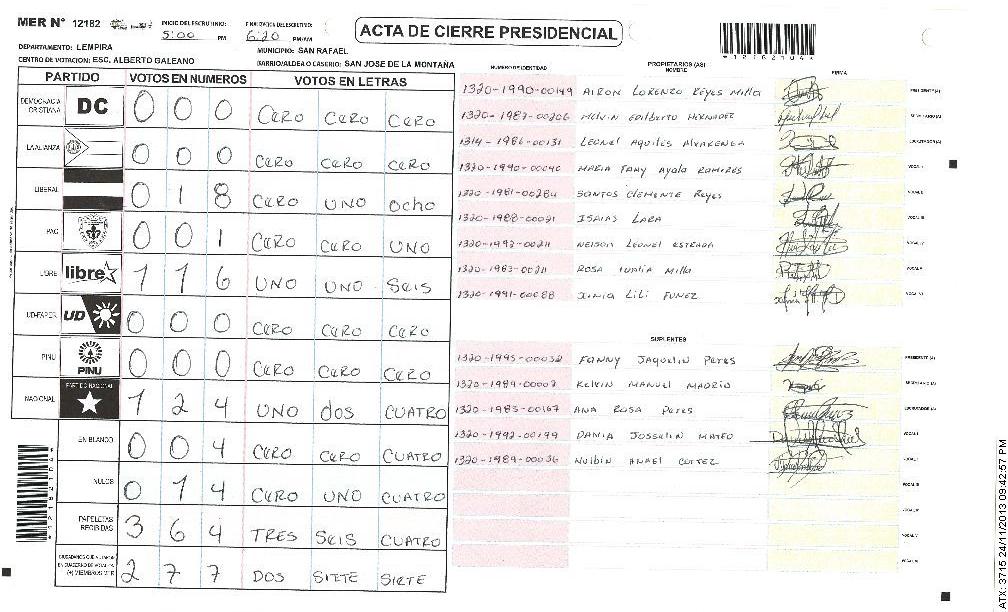 MER N° 12182
INICIO DEL ESCRUTINIO: 5:00 PM
FINALIZACION DEL ESCRUTINIO: 6:20 PM/AM
ACTA DE CIERRE PRESIDENCIAL
*12182104*
DEPARTAMENTO: LEMPIRA
MUNICIPIO: SAN RAFAEL
CENTRO DE VOTACION: ESC. ALBERTO GALEANO
BARRIO/ALDEA O CASERIO: SAN JOSE DE LA MONTAÑA
PARTIDO VOTOS EN NUMEROS VOTOS EN LETRAS
DEMOCRACIA CRISTIANA DC 0 0 0 CERO CERO CERO
LA ALIANZA 0 0 0 CERO CERO CERO
LIBERAL 0 1 8 CERO UNO OCHO
PAC 0 0 1 CERO CERO UNO
LIBRE libre 1 1 6 UNO UNO SEIS
UD-FAPER UD 0 0 0 CERO CERO CERO
PINU PINU 0 0 0 CERO CERO CERO
NACIONAL PARTIDO NACIONAL 1 2 4 UNO dOS CUATRO
EN BLANCO 0 0 4 CERO CERO CUATRO
NULOS 0 1 4 CERO UNO CUATRO
PAPELETAS RECIBIDAS 3 6 4 TRES SEIS CUATRO
CIUDADANOS QUE VOTARON EN CUADERNO DE VOTACION (+) MIEMBROS MER 2 7 7 DOS SIETE SIETE
NUMERO DE IDENTIDAD PROPIETARIOS (AS) NOMBRE FIRMA
1320-1990-00149 AIRON LORENZO REYES Milla PRESIDENTE (A)
1320-1987-00206 MELVIN EdilbERTO HERNADEZ SECRETARIO (A)
1314-1986-00131 LEONEL AQUILES ALVARENGA ESCRUTADOR (A)
1320-1990-00090 MARIA FANY Ayala RAMIRES VOCAL I
1320-1981-00284 SANTOS CLEMENTE REYES VOCAL II
1320-1988-00021 ISAIAS LARA VOCAL III
1320-1992-00211 NELSON LEONEL ESTRADA VOCAL IV
1320-1983-00211 ROSA Milla VOCAL V
1320-1991-00088 XINIA LILI FUNEZ VOCAL VI
SUPLENTES
1320-1995-00032 FANNY JAQUELIN PERES PRESIDENTE (A)
1320-1989-00007 KELVIN MANUEL MADRID SECRETARIO (A)
1320-1985-00167 ANA ROSA PERES ESCRUTADOR (A)
1320-1992-00199 DANIA JOSSELIN MATEO VOCAL I
1320-1989-00036 ANAEL CORTEZ VOCAL II
VOCAL III
VOCAL IV
VOCAL V
VOCAL VI
ATX: 3715 24/11/2013 09:42:57 PM